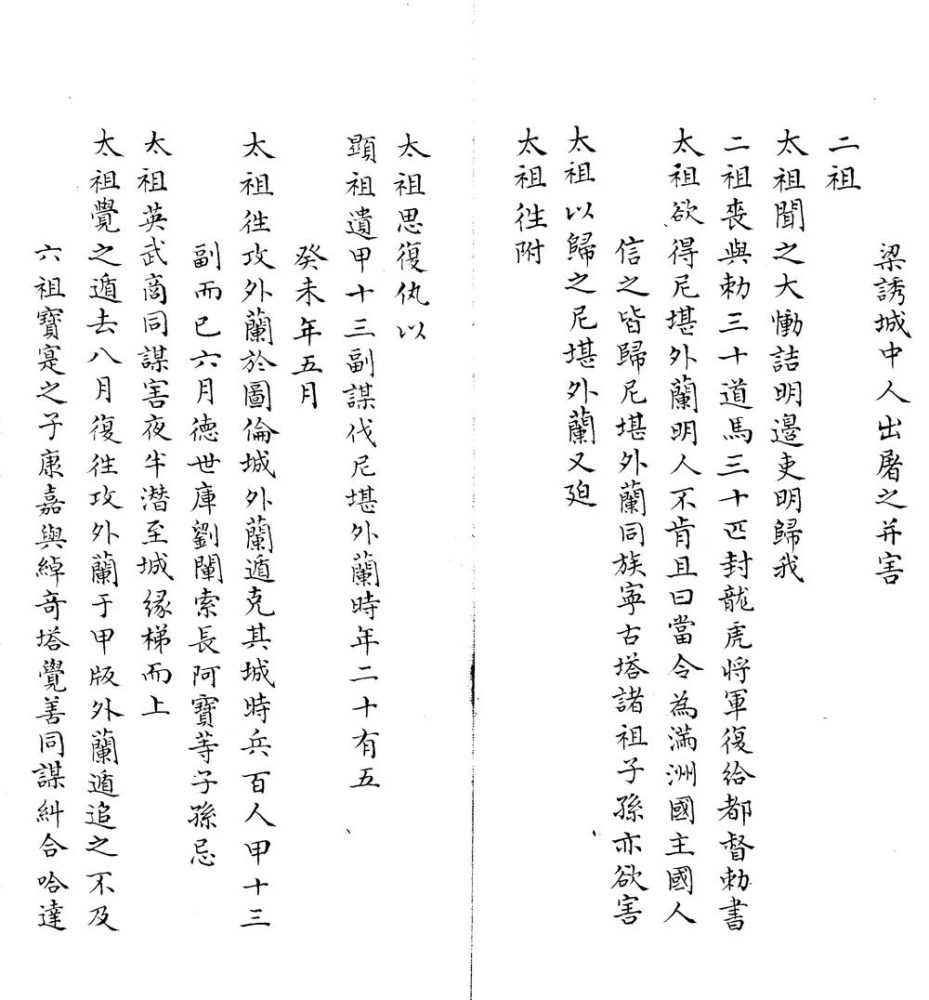 梁誘城中人出屠之并害
二祖
太祖聞之大慟詰明邊吏明歸我
二祖喪與勅三十道馬三十匹封龍虎將軍復給都督勅書
太祖欲得尼堪外蘭明人不肯且曰當令為滿洲國主國人
信之皆歸尼堪外蘭同族寧古塔諸祖子孫亦欲害
太祖以歸之尼堪外蘭又廹
太祖徃附
太祖思復仇以
顯祖遺甲十三副謀伐尼堪外蘭時年二十有五
癸未年五月
太祖徃攻外蘭於圖倫城外蘭遁克其城時兵百人甲十三
副而已六月德世庫劉闡索長阿寶等子孫忌
太祖英武啇同謀害夜半潜至城緣梯而上
太祖覺之遁去八月復徃攻外蘭于甲版外蘭遁追之不及
六祖寶寔之子康嘉與綽奇塔覺善同謀糾合哈達